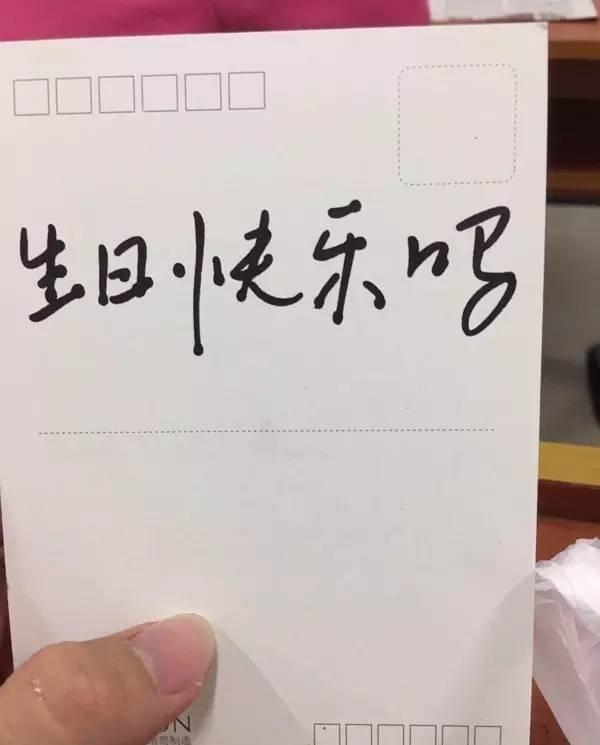 生日快乐吗